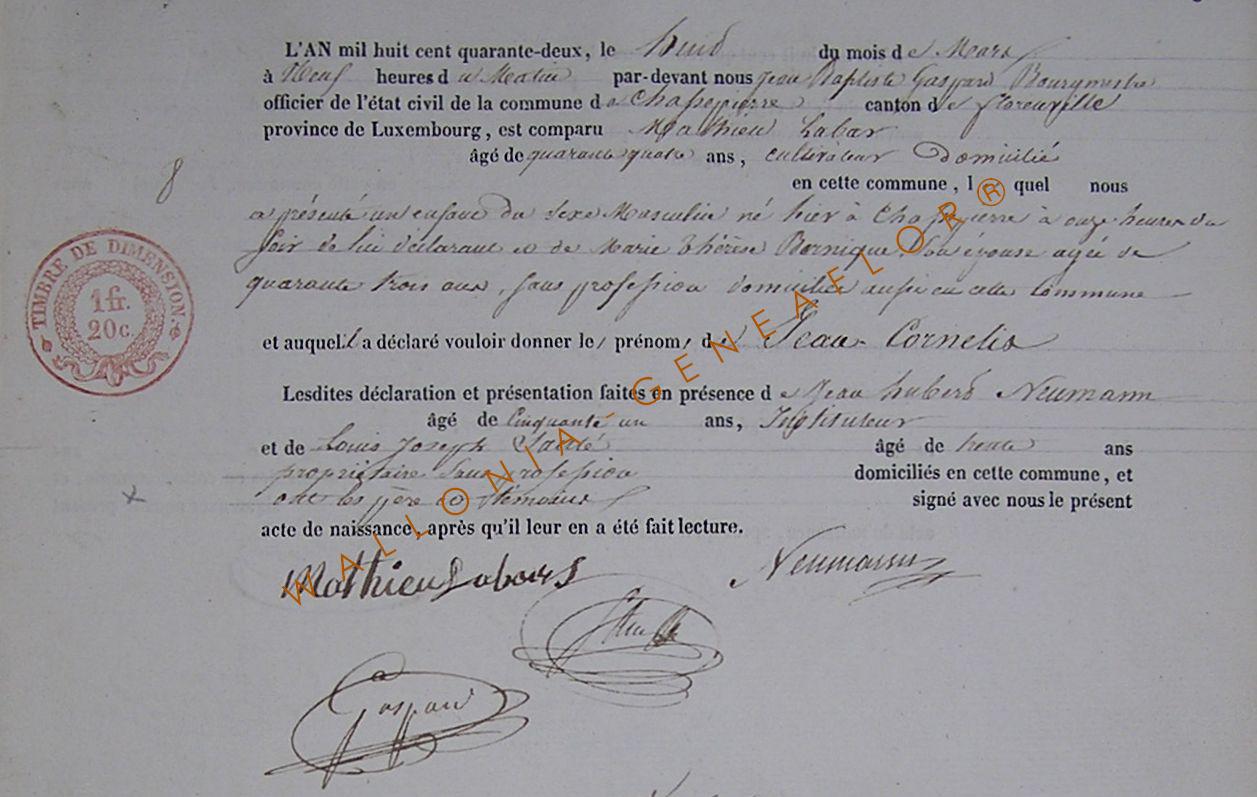 L'AN mil huit cent quarante-deux, le huid du mois de Mars
à Neuf heures du Matin par-devant nous Jean Baptiste Gaspard Bourgmestre
officier de l'état civil de la commune de Chassepierre canton de florenville
province de Luxembourg, est comparu Mathieu Labar
âgé de quarante quatre ans, cultivateur Domicilié
8
en cette commune, lequel nous
a présenté un enfant du sexe Masculin né hier à Chassepierre à onze heures du
Soir de lui déclarant et de Marie thérèse Bornique Son épouse agée de
quarante trois ans, sans profession domiciliée aussi en cette Commune
TIMBRE DE DIMENSION.
1 fr.
20 c.
et auquel il a déclaré vouloir donner le prénom de Jean Cornelis
Lesdites déclaration et présentation faites en présence de Jean hubert Neumann
âgé de Cinquante un ans, Instituteur
et de Louis Joseph âgé de trente ans
propriétaire Sans profession domiciliés en cette commune, et
ont les père et témoins signé avec nous le présent
acte de naissance, après qu'il leur en a été fait lecture.
Mathieu Labar
Neumann
Gaspard
WALLONIA-GENEAELOR®